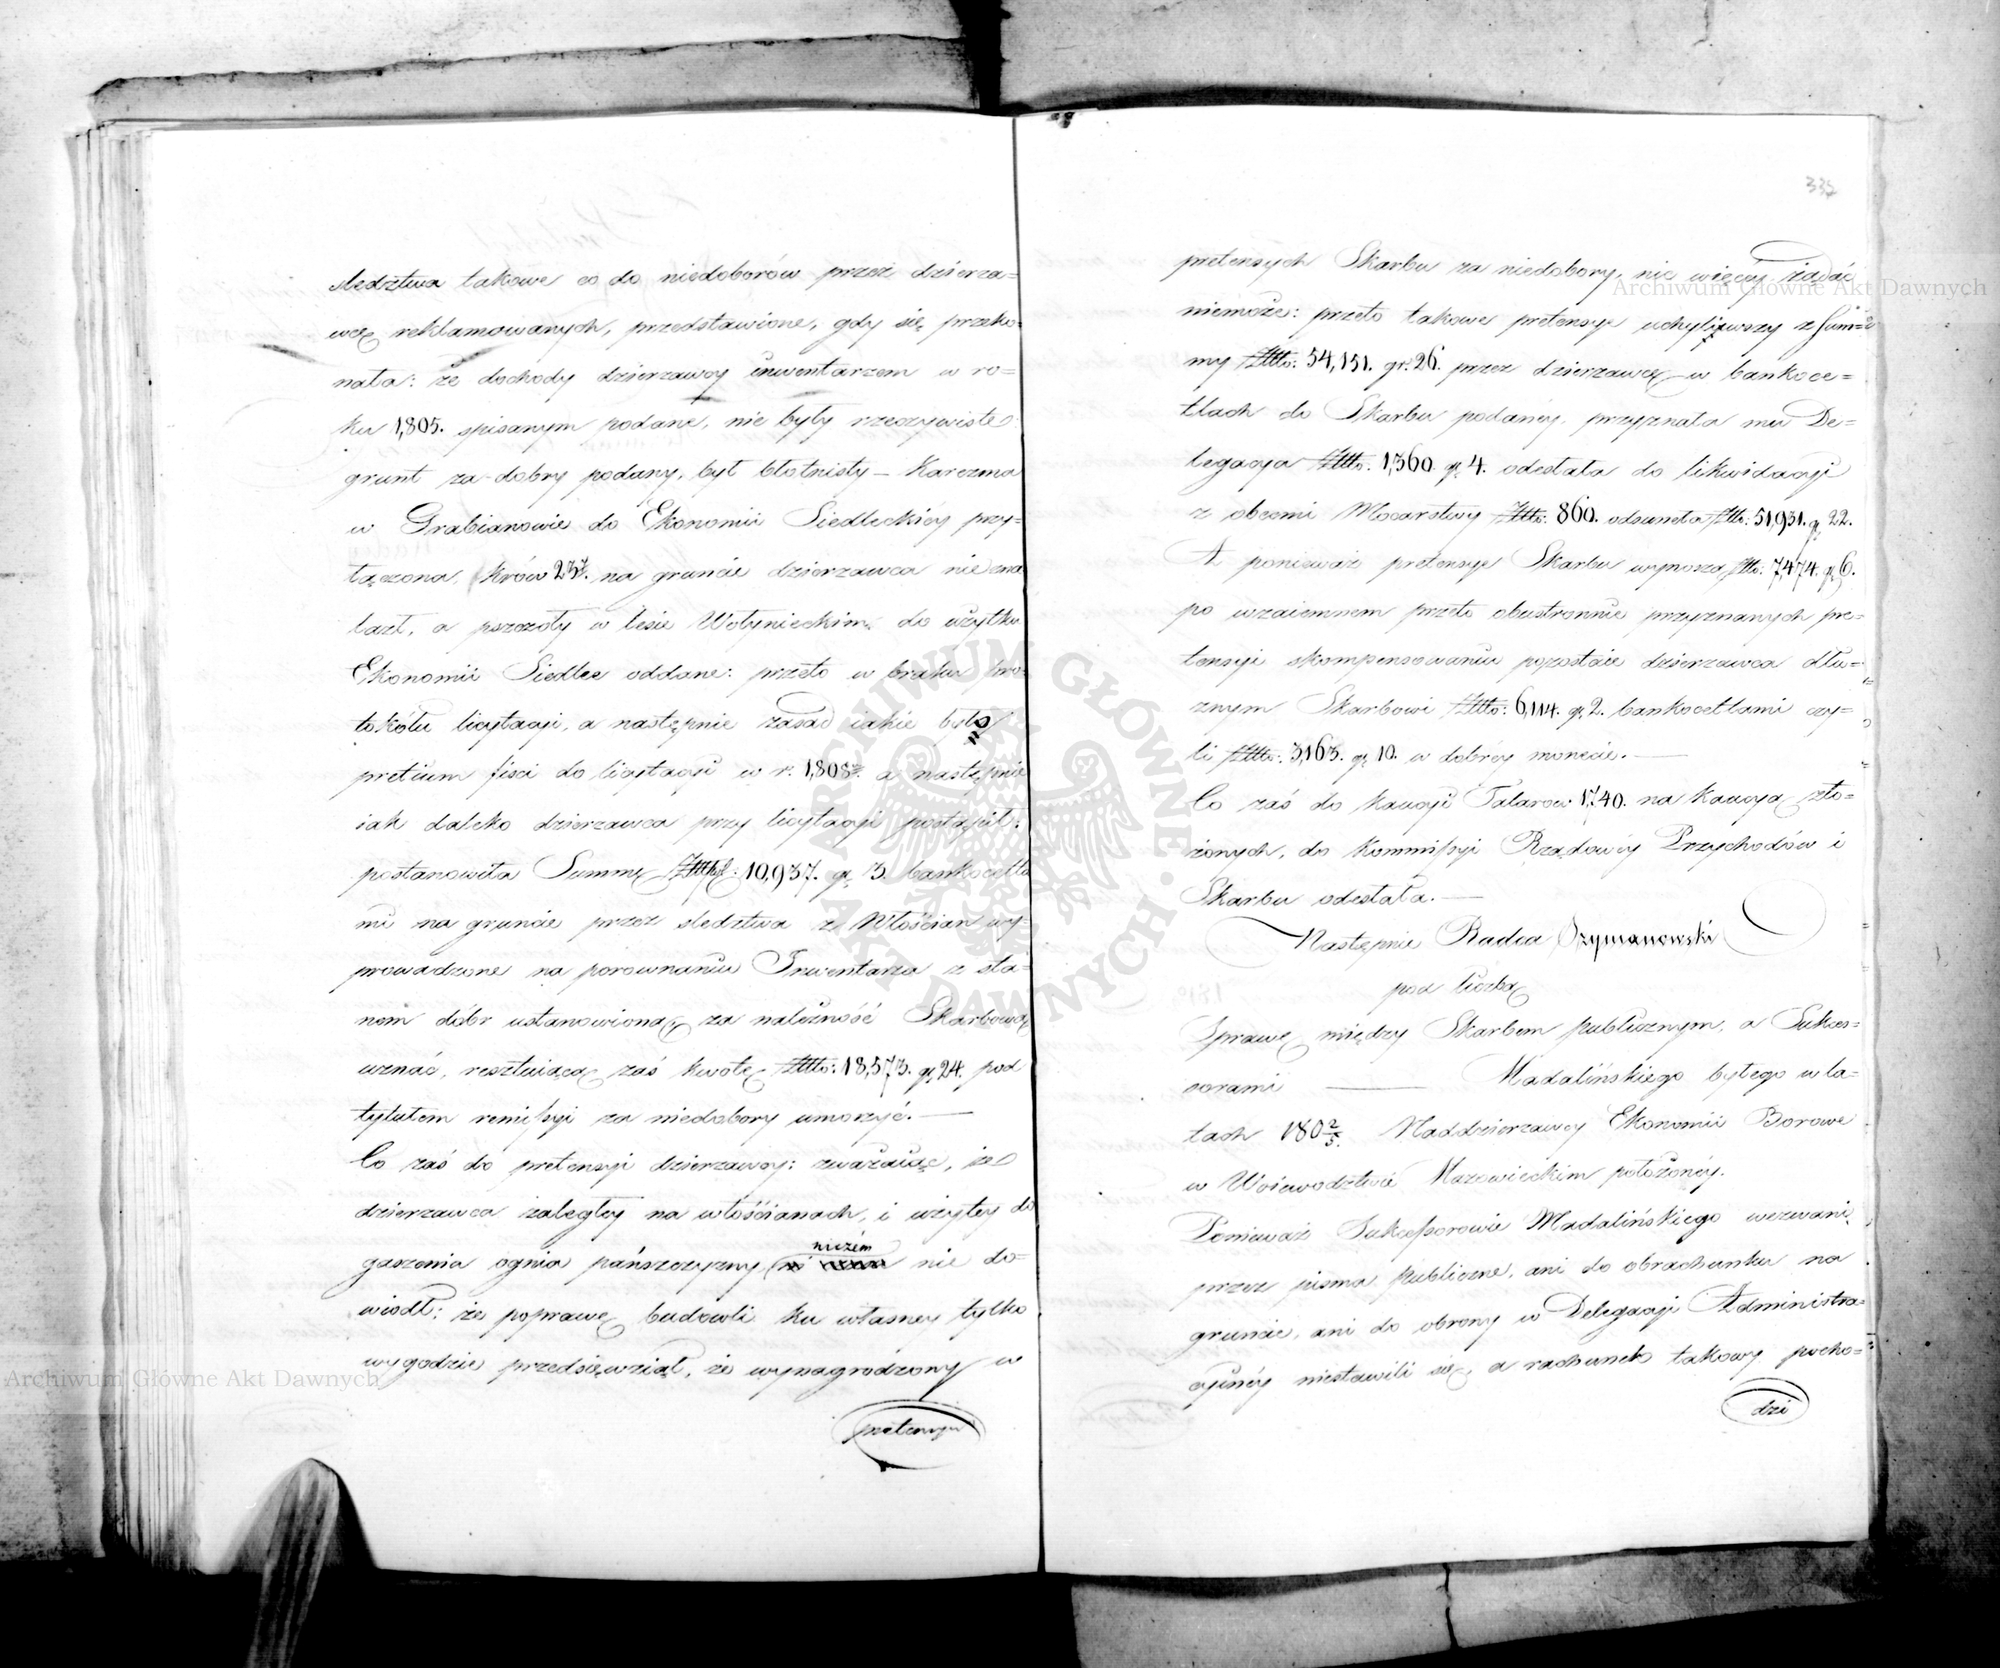 śledztwa takowe co do niedoborów przez dzierza=
wcę reklamowanych, przedstawione, gdy się przeko=
nała: że dochody dzierzawcy inwentarzem w ro=
ku 1,805. spisanym podane, nie były rzeczywiste
grunt za dobry podany, był błotnisty – Karczma
w Grabianowie do Ekonomii Siedleckiéy przy=
łączona, krów 23. na gruncie dzierzawca nie zna
lazł, a pszczoły w lesie Wołynieckim, do użytku
Ekonomii Siedlce oddane: przeto w braku pro=
tokółu licytacyi, a następnie zasad iakie było
pretium fisci do licytacyi w r. 1,808. a następnie
iak daleko dzierzawca przy licytacyi postąpił:
postanowiła Summę 10,937. gr 3. bankocetla
mi na gruncie przez śledztwa z Włościan wy=
prowadzone na porównaniu Inwentarza z sta=
nem dóbr ustanowioną, za należność Skarbową
uznać, resztuiącą zaś kwotę Złtto: 18,573. gr 24. pod
tytułem remissyi za niedobory umorzyć. —
Co zaś do pretensyi dzierzawcy: zważaiąc, że
dzierzawca zaległey na włościanach, i użytey do
gaszenia ognia pańszczyzny, niczém nie do=
wiódł; że poprawę budowli ku własney tylko
wygodzie przedsięwziął, że wynagrodzony w
pretensyi
335
pretensych Skarbu za niedobory, nic więcéy żądać
niemoże: przeto takowe pretensye uchyliwszy z Sum=
my Złtto: 54,151. gr: 26. przez dzierzawcę w bankoce=
tlach do Skarbu podanéy, przyznała mu De=
legacya Złtto: 1,360. gr 4. odesłała do likwidacyi
z obcemi Mocarstwy Złtto: 860. odsunęła Złtto: 51,931. gr 22.
A ponieważ pretensye Skarbu wynoszą Złtto: 7,474. gr 6.
po wzaiemnem przeto obustronnie przyznanych pre=
tensyi skompensowaniu pozostaie dzierzawca dłu=
żnym Skarbowi Złtto: 6,114. gr 2. bankocetlami czy=
li Złtto: 3,163. gr 10. w dobréy monecie. —
Co zaś do kaucyi Talarow 1740. na Kaucyą zło=
żonych, do Kommissyi Rządowéy Przychodów i
Skarbu odesłała. —
Następnie Radca Szymanowski
pod liczbą
Sprawę między Skarbem publicznym, a Sukces=
sorami — Madalińskiego byłego w la=
tach 180 2/5. Naddzierzawcy Ekonomii Borowe
w Woiewodztwie Mazowieckim położonéy.
Ponieważ Sukcessorowie Madalińskiego wezwani
przez pisma publiczne, ani do obrachunku na
gruncie, ani do obrony w Delegacyi Administra=
cyinéy niestawili się, a rachunek takowy pocho=
dzi
Archiwum Główne Akt Dawnych
Archiwum Główne Akt Dawnych
ARCHIWUM GŁÓWNE AKT DAWNYCH